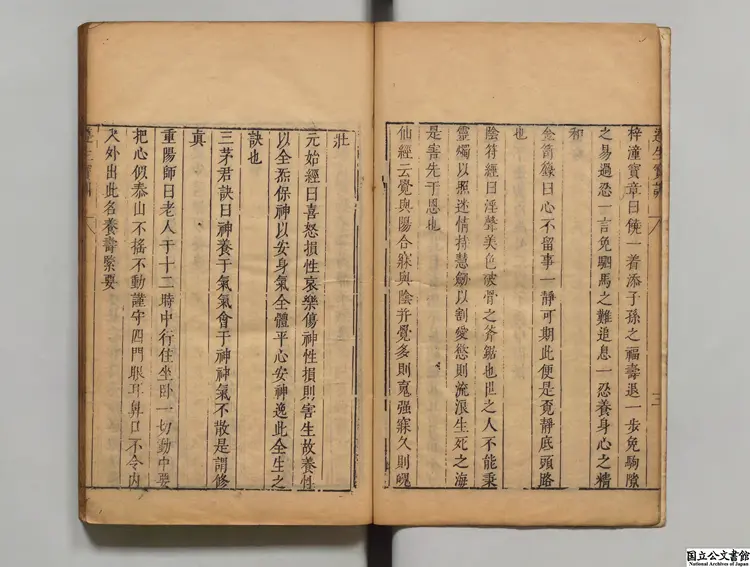 梓潼寶章曰饒一着添子孫之福壽退一步免駒隙
之易過忍一言免駟馬之難追息一忍養身心之精
和
金笥籙曰心不留事一靜可期此便是覓靜底頭路
也
陰符經曰淫聲美色破骨之斧鋸也世之人不能秉
靈燭以照迷情持慧劒以割愛慾則流浪生死之海
是害先于恩也
仙經云覺與陽合寐與陰并覺多則魂强寐久則魄
壯
元始經曰喜怒損性哀樂傷神性損則害生故養性
以全炁保神以安身氣全體平心安神逸此全生之
訣也
三茅君訣曰神養于氣氣會于神神氣不散是謂修
真
重陽師曰老人于十二時中行住坐卧一切動中要
把心似泰山不搖不動謹守四門眼耳鼻口不令内
入外出此名養壽緊要
国立公文書館
National Archives of Japan